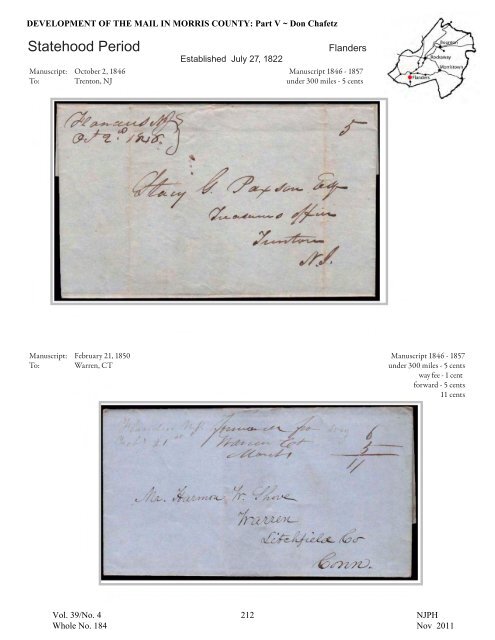 DEVELOPMENT OF THE MAIL IN MORRIS COUNTY: Part V ~ Don Chafetz
Statehood Period
Flanders
Established July 27, 1822
Boonton
Rockaway
Morristown
Flanders
Manuscript: October 2, 1846
To: Trenton, NJ
Manuscript 1846 - 1857
under 300 miles - 5 cents
Flanders NJ
Oct 2d 1846.
5
Stacy G. Paxson Esq
Treasurers office
Trenton
N.J.
Manuscript: February 21, 1850
To: Warren, CT
Manuscript 1846 - 1857
under 300 miles - 5 cents
way fee - 1 cent
forward - 5 cents
11 cents
Flanders NJ
Feb 21st
Warren Cot
March 1
6
5
11
Mr. Harmon W. Shove
Warren
Litchfield Co
Conn.
Vol. 39/No. 4
Whole No. 184
212
NJPH
Nov 2011